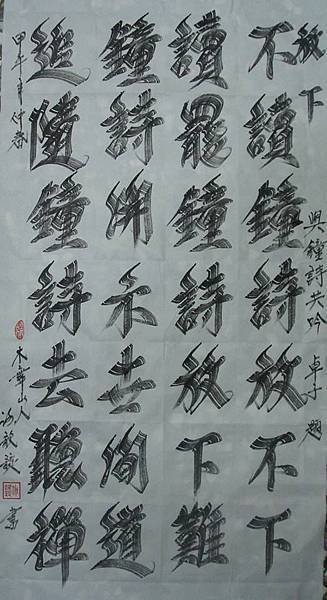 放下
與鐘詩共吟 卓子題
不讀鐘詩放不下
讀罷鐘詩放下難
鐘詩開示去問道
追隨鐘詩去聽禪
甲午年付春
木華山人